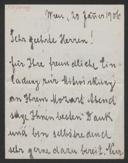 Wien, 29 Jänner 1906
Sehr geehrte Herren!
für Ihre freundliche Ein-
ladung zur Mitwirkung
an Ihrem Mozart Abend
sage Ihnen besten Dank
und bin selbstredend
sehr gerne dazu bereit.